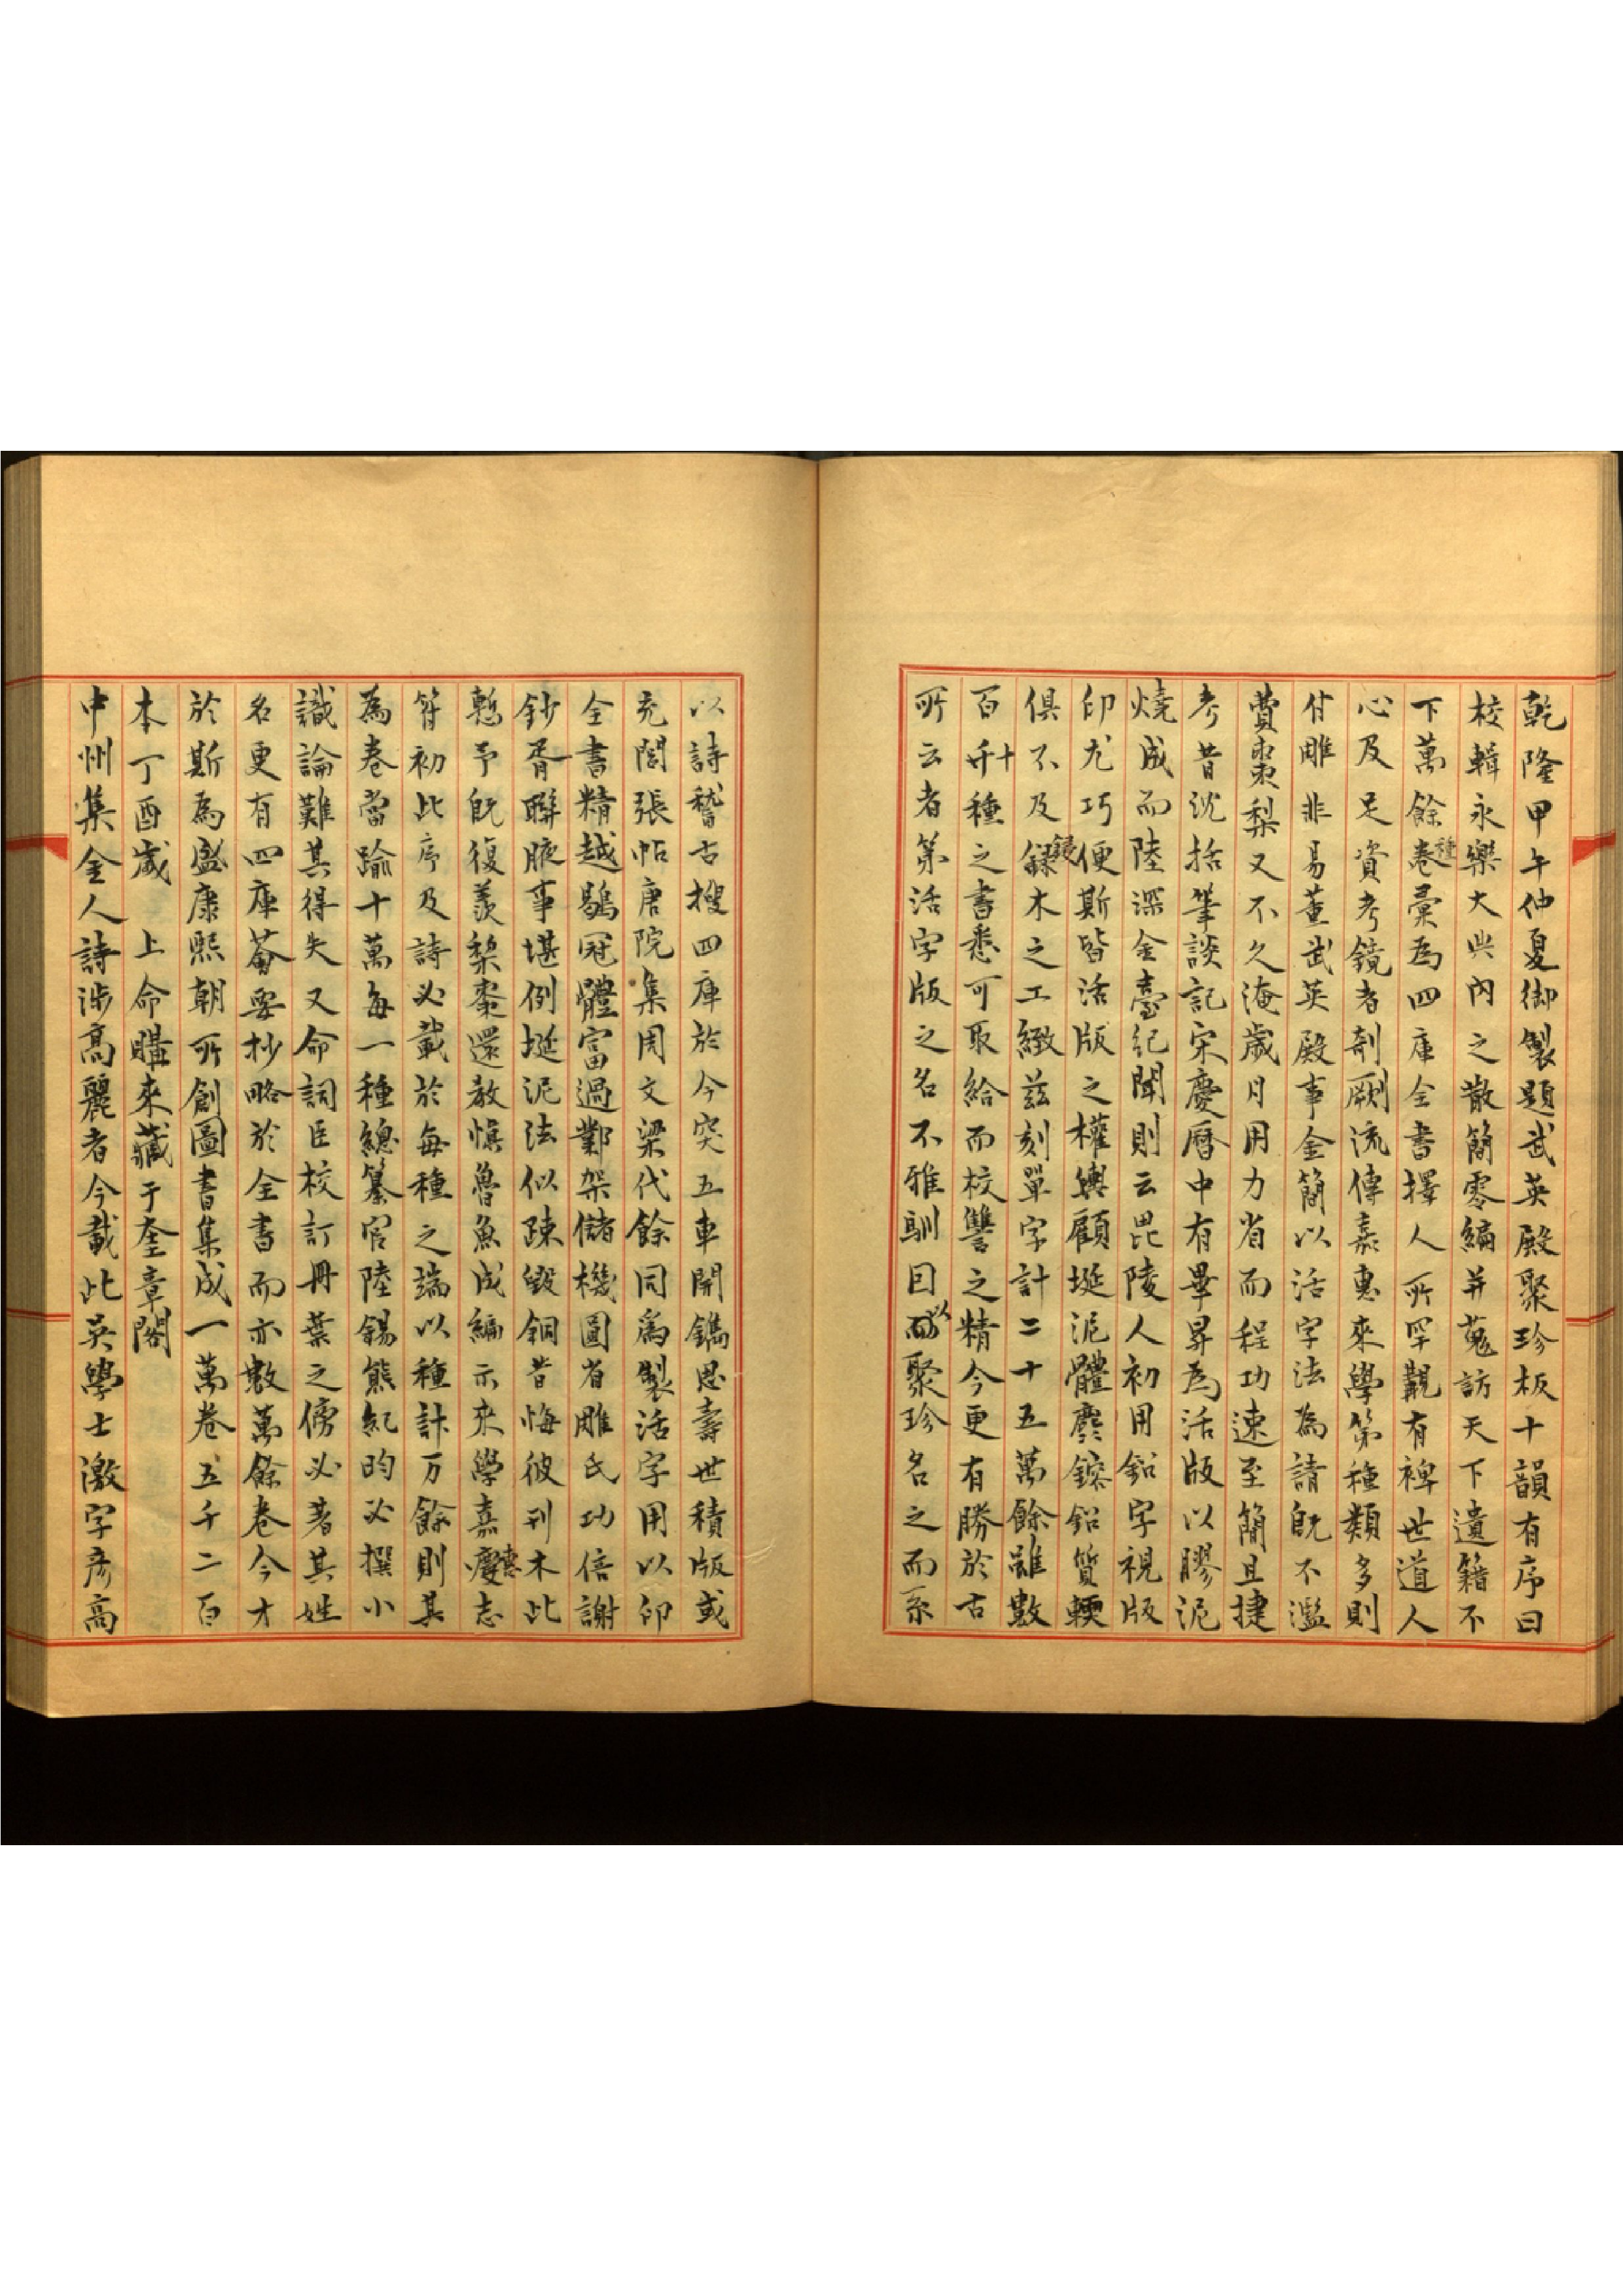 乾隆甲午仲夏御製題武英殿聚珍板十韻有序曰
校輯永樂大典內之散簡零編并蒐訪天下遺籍不
下萬餘卷種彙為四庫全書擇人所罕覯有裨世道人
心及足資考鏡者剞劂流傳嘉惠來學第種類多則
付雕非易董武英殿事金簡以活字法為請既不濫
費棗梨又不久淹歲月用力省而程功速至簡且捷
考昔沈括筆談記宋慶曆中有畢昇為活版以膠泥
燒成而陸深金臺紀聞則云毘陵人初用鉛字視版
印尤巧便斯皆活版之權輿顧埏泥體麤鎔鉛質輭
俱不及鋟木之工緻茲刻單字計二十五萬餘雖數
百千十種之書悉可取給而校讐之精今更有勝於古
所云者第活字版之名不雅馴因以聚珍名之而系
以詩稽古搜四庫於今突五車開鐫思壽世積版或
充閭張帖唐院集周文梁代餘同為製活字用以印
全書精越鶡冠體富過鄴架儲機圓省雕氏功倍謝
鈔胥聯腋事堪例埏泥法似疎毀銅昔悔彼刊木此
慙予既復羨梨棗還教慎魯魚成編示來學嘉慶惠志
符初此序及詩必載於每種之端以種計万餘則其
為卷當踰十萬每一種總纂官陸錫熊紀昀必撰小
識論難其得失又命詞臣校訂冊葉之傍必著其姓
名更有四庫薈要抄略於全書而亦數萬餘卷今才
於斯為盛康熙朝所創圖書集成一萬卷五千二百
本丁酉歲　上命購來藏于奎章閣
中州集金人詩涉高麗者今載此吳學士激字彥高